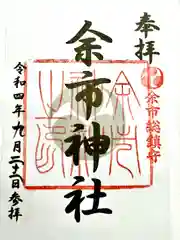 奉拝
余市総鎮守
余市神社
令和四年九月二十二日参拝